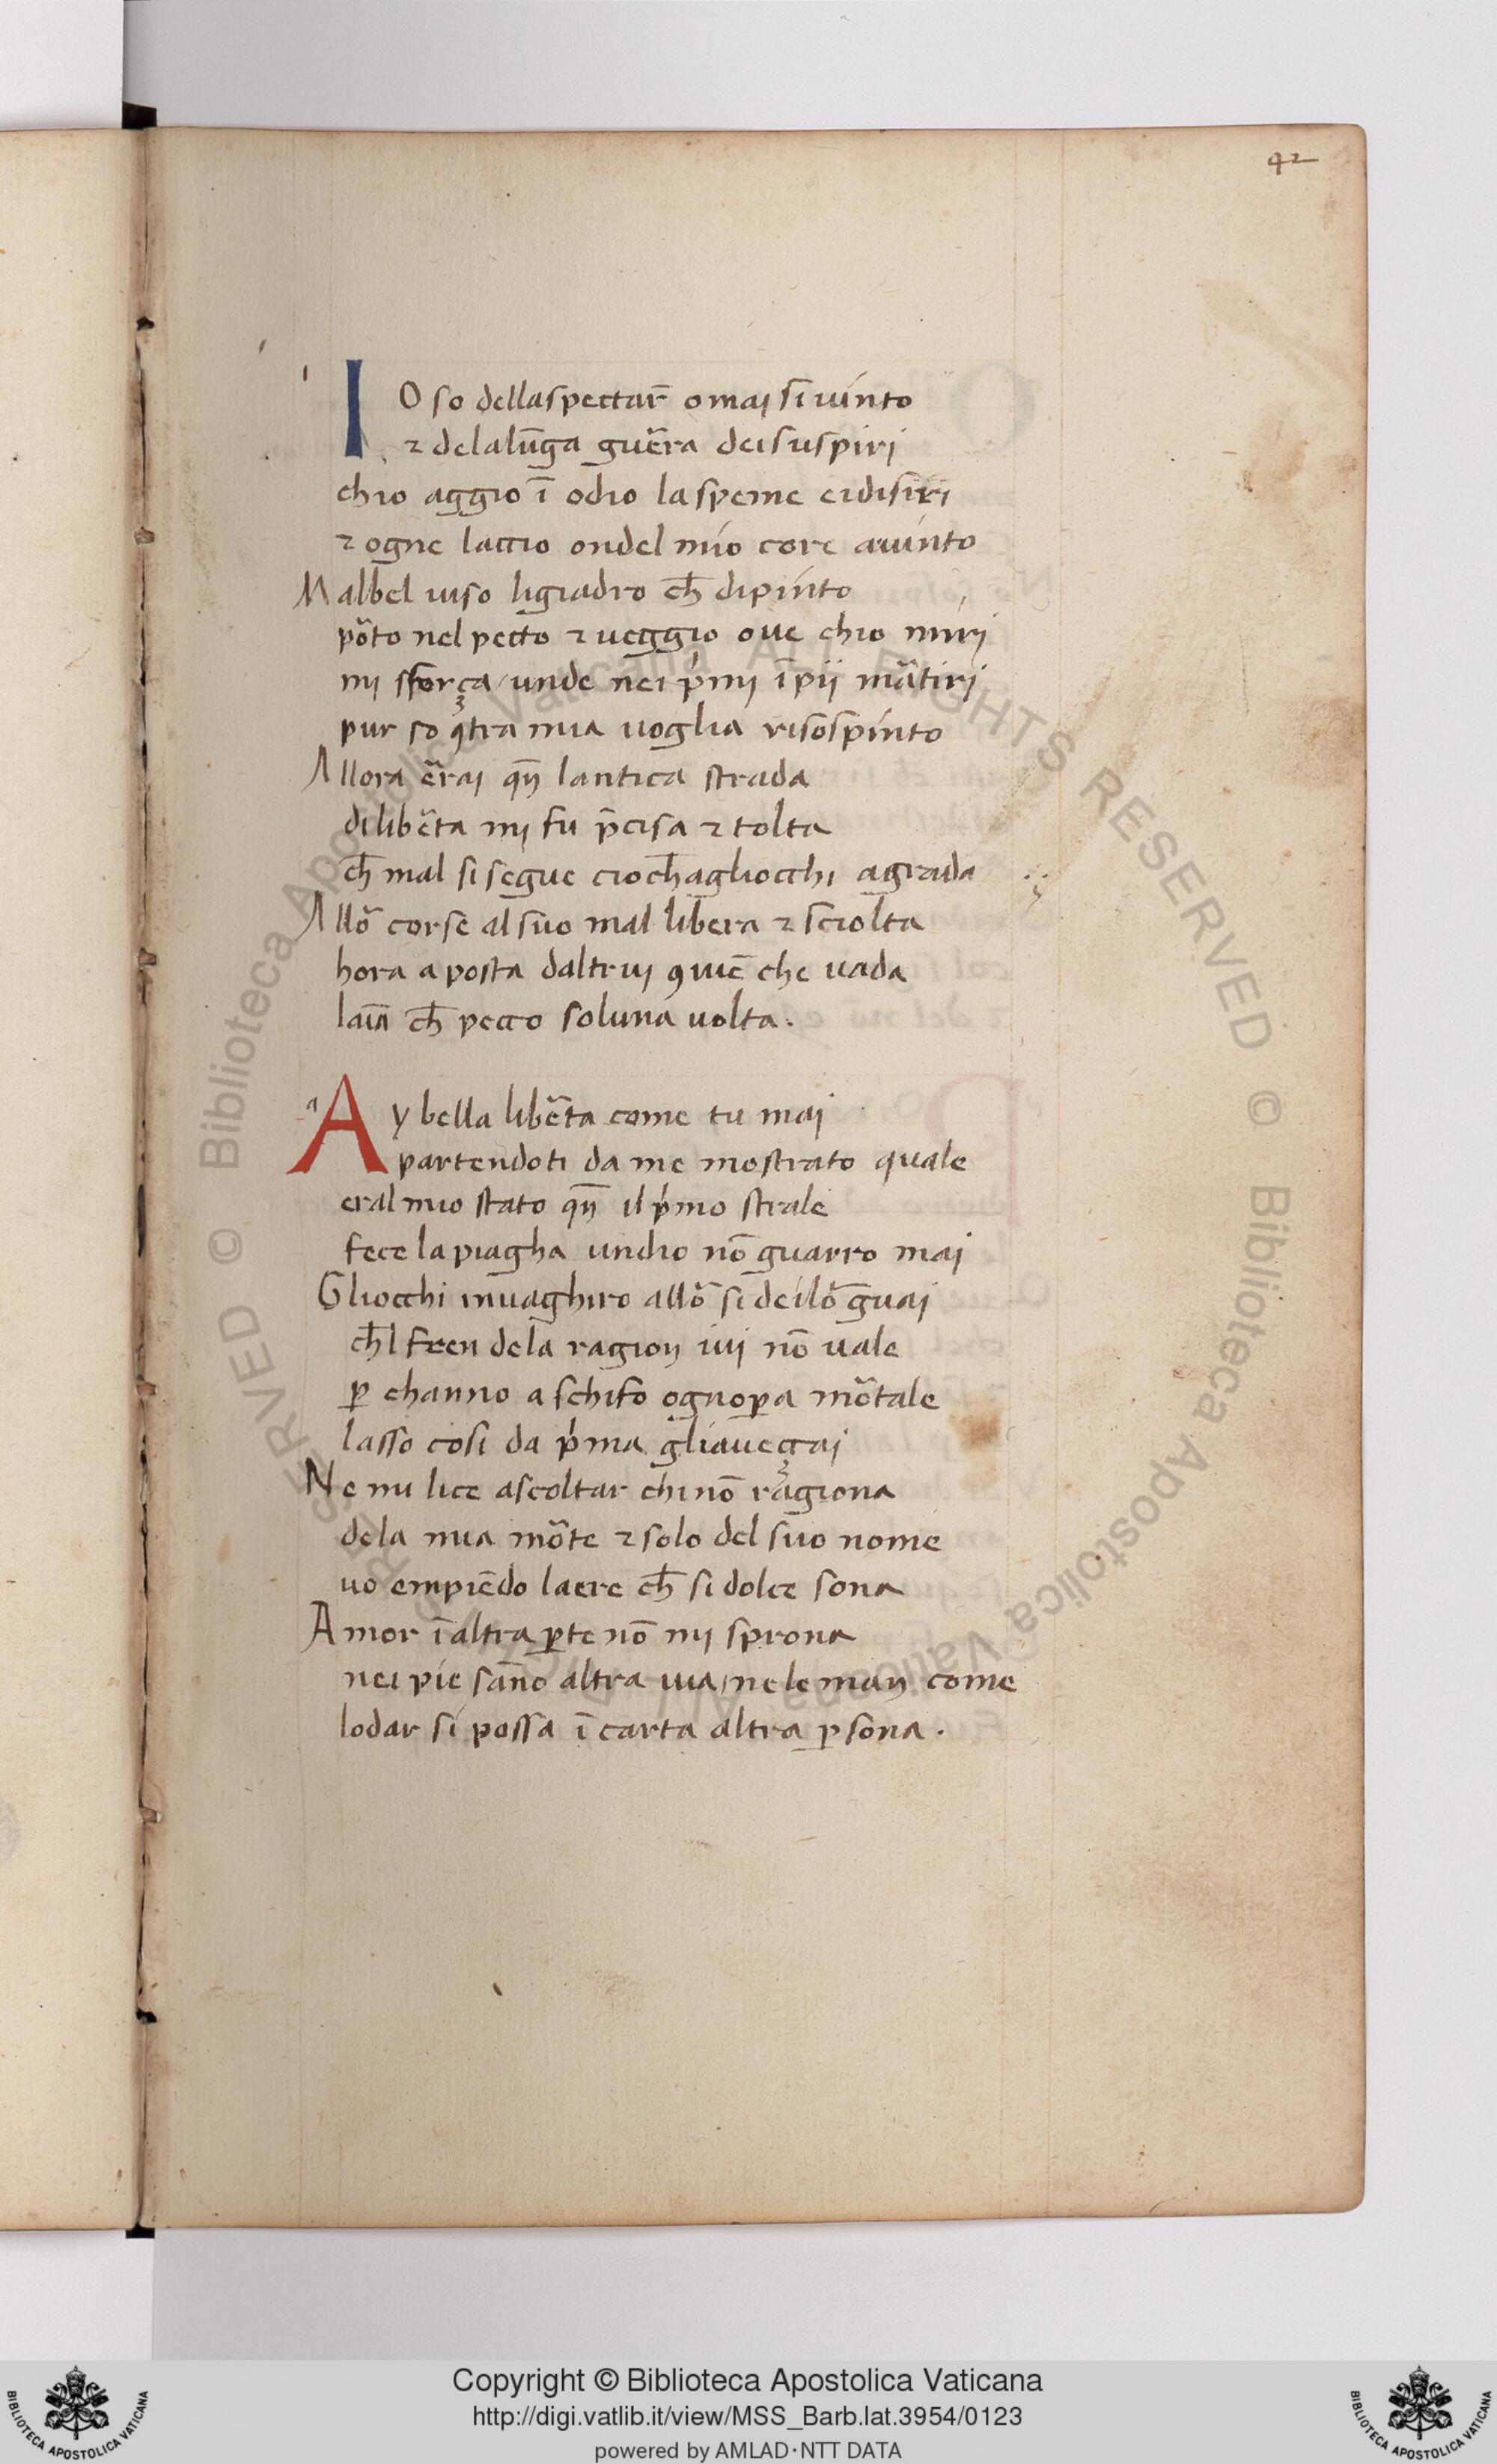 42
IO so dellaspectar̄ omaj sī uinto
⁊ delalūga guēra dei suspirj
chio aggio ī odio la speme eidisirj
⁊ ogne laccio ondel mio core auuinto
Malbel uiso ligiadro ch̄ dipinto
pōto nel pecto ⁊ ueggio oue chio mirj
mj sforça / unde nei p̍mij īpij mātirj
pur so ꝯtra mia uoglia risospinto
Allora ēraj qn̄ lantica strada
dilibēta mj fu p̄cisa ⁊ tolta
ch̄ mal si segue cioch̄agliocchi agrada
Allō corse al suo mal libera ⁊ sciolta
hora a posta daltruj ꝯuiē che uada
laīa ch̄ pecco soluna uolta.
Ay bella libēta come tu maj
partendoti da me mostrato quale
eral mio stato qn̄ il p̍mo strale
fece la piagha undio nō guarro maj
Gliocchi inuaghiro allō si deilō guaj
ch̄l fren dela ragion iuj nō uale
ꝑ channo a schifo ognoꝑa mōtale
lasso cosi da p̍ma gliaueççaj
Ne mi lice ascoltar chi nō ragiona
dela mia mōte ⁊ solo del suo nome
uo empiēdo laere ch̄ si dolce sona
Amor ī altra ꝑte nō mj sprona
nei pie sāno altra uia / ne le man come
lodar si possa ī carta altra ꝑsona.
© Biblioteca Apostolica Vaticana ALL RIGHTS RESERVED © Biblioteca Apostolica Vaticana ALL RIGHTS RESERVED
Copyright © Biblioteca Apostolica Vaticana
http://digi.vatlib.it/view/MSS_Barb.lat.3954/0123
powered by AMLAD·NTT DATA
BIBLIOTECA APOSTOLICA VATICANA
BIBLIOTECA APOSTOLICA VATICANA